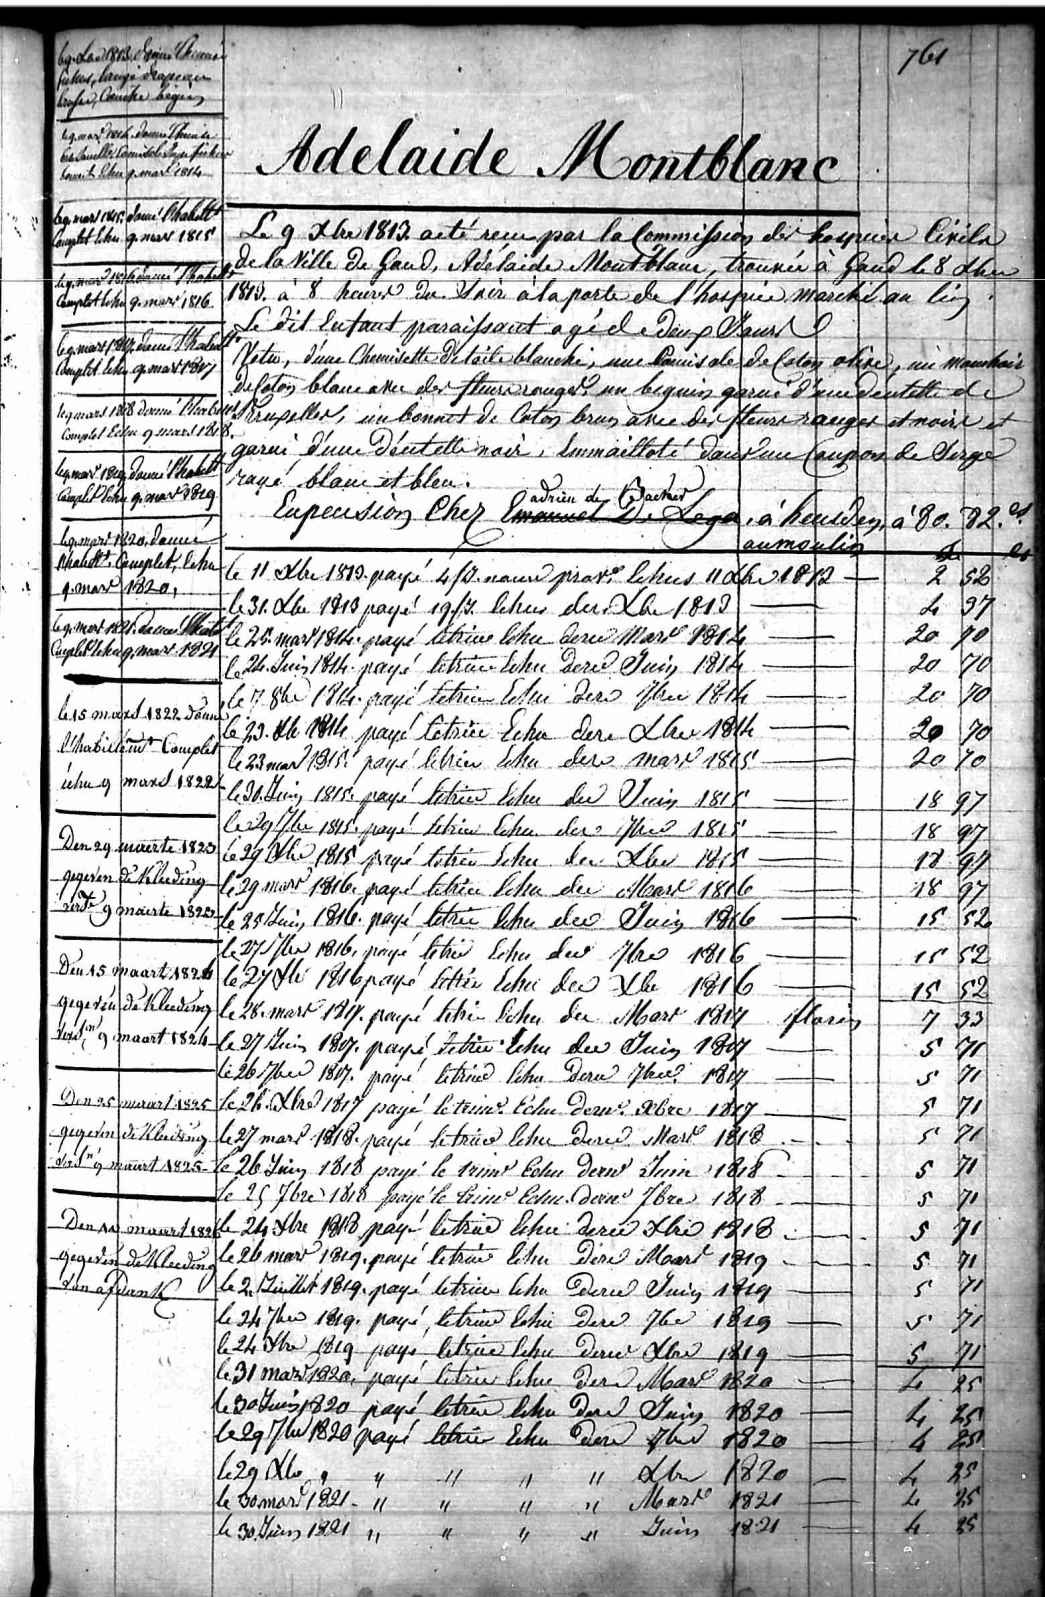 761
Adelaide Montblanc
Le 9 Xbre 1813. a été recu par la Commission des hospices Civils
de la Ville de Gand, Adélaide Montblanc, trouvée à Gand le 8 Xbre
1813. à 8 heures du Soir à la porte de l'hospice, marché au lin.
Le dit Enfant paraissant agé de deux Jours
Vetu, d'une Chemisette de toile blanche, une Camisole de Coton olive, un mouchoir
de Coton blanc avec des fleurs rouges, un beguin garni d'une dentelle de
Bruxelles, un bonnet de Coton brun avec des fleurs rouges et noirs et
garni d'une Dentelle noir, Emmailloté dans un Coupon de Serge
rayé blanc et bleu.
adrien de Backer
En pension Chez Emanuel De Lega, à heusden, à 80. 82. cs
au moulin
le 11 Xbre 1813. payé 4/J. nource provre Echus 11 Xbre 1813 2 52
le 31. Xbre 1813 payé 19/J. Echus der. Xbre 1813 4 97
le 25. mars 1814. payé letrime Echu dere Mars 1814 20 70
le 24. Juin 1814. payé letrime Echu dere Juin 1814 20 70
le 7. 8bre 1814. payé letrime Echu dere 7bre 1814 20 70
le 23. Xbre 1814 payé letrime Echu dere Xbre 1814 20 70
le 23 mars 1815. payé letrime Echu dere mars 1815 20 70
le 30. Juin 1815. payé letrime Echu der Juin 1815 18 97
le 29 7bre 1815. payé letrime Echu der 7bre 1815 18 97
le 29 Xbre 1815 payé letrime Echu der Xbre 1815 18 97
le 29 mars 1816. payé letrime Echu der Mars 1816 18 97
le 25 Juin 1816. payé letrime Echu der Juin 1816 15 52
le 27 7bre 1816. payé letrime Echu der 7bre 1816 15 52
le 27 Xbre 1816 payé letrime Echu der Xbre 1816 15 52
le 28. mars 1817. payé letrime Echu der Mars 1817 florin 7 33
le 27 Juin 1817. payé letrime Echu der Juin 1817 5 71
le 26 7bre 1817. payé letrime Echu dere 7bre. 1817 5 71
le 26. Xbre 1817 payé le trimre. Echu dernr. Xbre 1817 5 71
le 27 mars 1818. payé letrime Echu dere Mars 1818 5 71
le 26 Juin 1818 payé le trimre Echu dernr Juin 1818 5 71
le 25 7bre 1818 payé le trimre Echu dernr 7bre 1818 5 71
le 24 Xbre 1818 payé letrime Echu dere Xbre 1818 5 71
le 26 mars 1819. payé letrime Echu dere Mars 1819 5 71
le 2. Juillet 1819. payé letrime Echu dere Juin 1819 5 71
le 24 7bre 1819. payé letrime Echu dere 7bre 1819 5 71
le 24 Xbre 1819 payé letrime Echu dere Xbre 1819 5 71
le 31 mars 1820. payé letrime Echu dere Mars 1820 4 25
le 30 Juin 1820 payé letrime Echu dere Juin 1820 4 25
le 29 7bre 1820 payé letrime Echu dere 7bre 1820 4 25
le 29 Xbre " " " " " Xbre 1820 4 25
le 30 mars 1821 - " " " " Mars 1821 4 25
le 30. Juin 1821 " " " " Juin 1821 4 25
le 9. mars 1814. donné Chemise
bonnet Echu 9. mars 1814
le 9. mars 1815. donné l'habillt
Complet Echu 9. mars 1815
le 9. mars 1816 donné l'habillt
Complet Echu 9. mars 1816.
le 9. mars 1817. donné l'habillt
Complet Echu 9. mars 1817
le 9 mars 1818 donné l'habillt
Complet Echu 9 mars 1818.
le 9. mars 1819. donné l'habillt
Complet Echu 9. mars 1819.
le 9. mars 1820. donné
l'habillt. Complet, Echu
9. mars 1820.
le 9. mars 1821. donné l'habillt
Complet Echu 9. mars 1821
le 15 mars 1822 donné
l'habillemt Complet
échu 9 mars 1822
Den 29 maerte 1823
gegeven de Kleeding
9 maerte 1823
Den 15 maart 1824
gegeven de Kleeding
9 maart 1824
Den 25 maart 1825
gegeven de Kleeding
9 maart 1825
Den 11 maart 1826
gegeven de Kleeding
van afdank